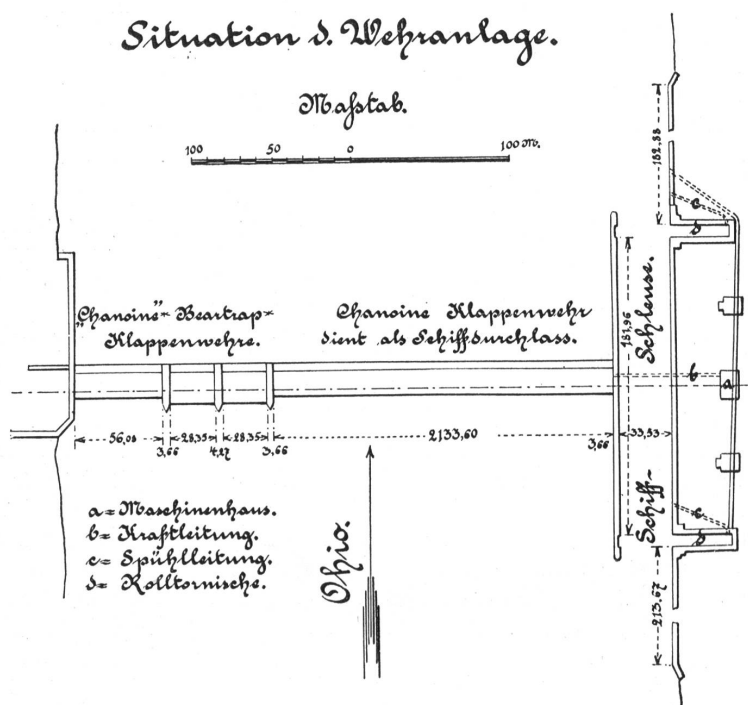 Situation d. Wehranlage.
Maßstab.
100 50 0 100 m.
„Chanoine"- Beartrap-
Klappenwehre.
Chanoine Klappenwehr
dient als Schiffsdurchlass.
56,08
3,66
28,35
4,27
28,35
3,66
2133,60
3,66
33,53
182.88
181,96
213.67
Schiff-Schleuse.
c
d
b
a
c
d
a = Maschinenhaus.
b = Kraftleitung.
c = Spühlleitung.
d = Rolltornische.
Ohio.